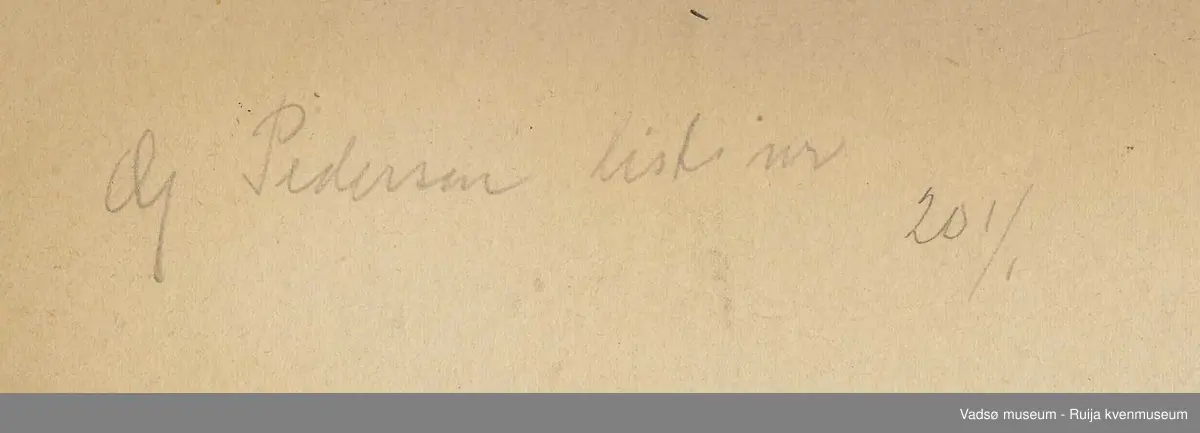 Pedersen liste nr
20 1/1
Vadsø museum - Ruija kvenmuseum